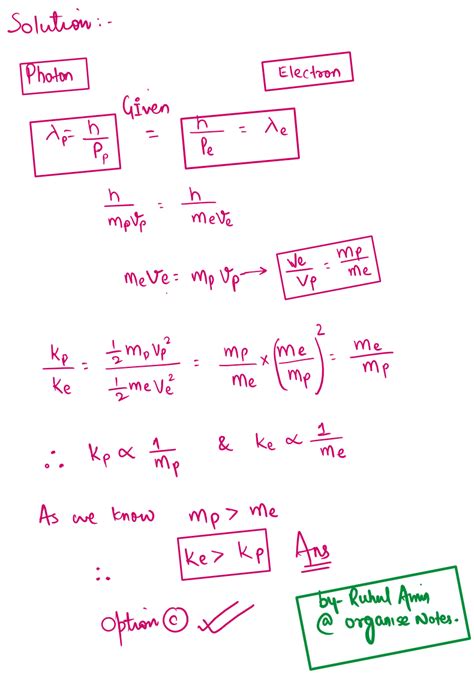 Solution:-
Photon Electron
Given
λp = h/Pp = h/Pe = λe
h/mpvp = h/meve
meve = mpvp → ve/vp = mp/me
kp/ke = ½mpvp²/½meve² = mp/me × (me/mp)² = me/mp
∴ kp ∝ 1/mp & ke ∝ 1/me
As we know mp > me
∴ ke > kp Ans
Option ⓒ ✓
by- Ruhul Amin
@ organise Notes.